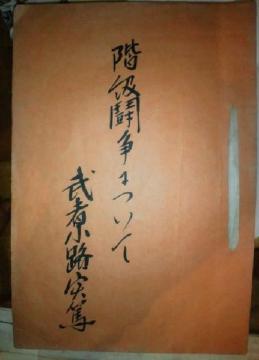 階級闘争について
武者小路実篤